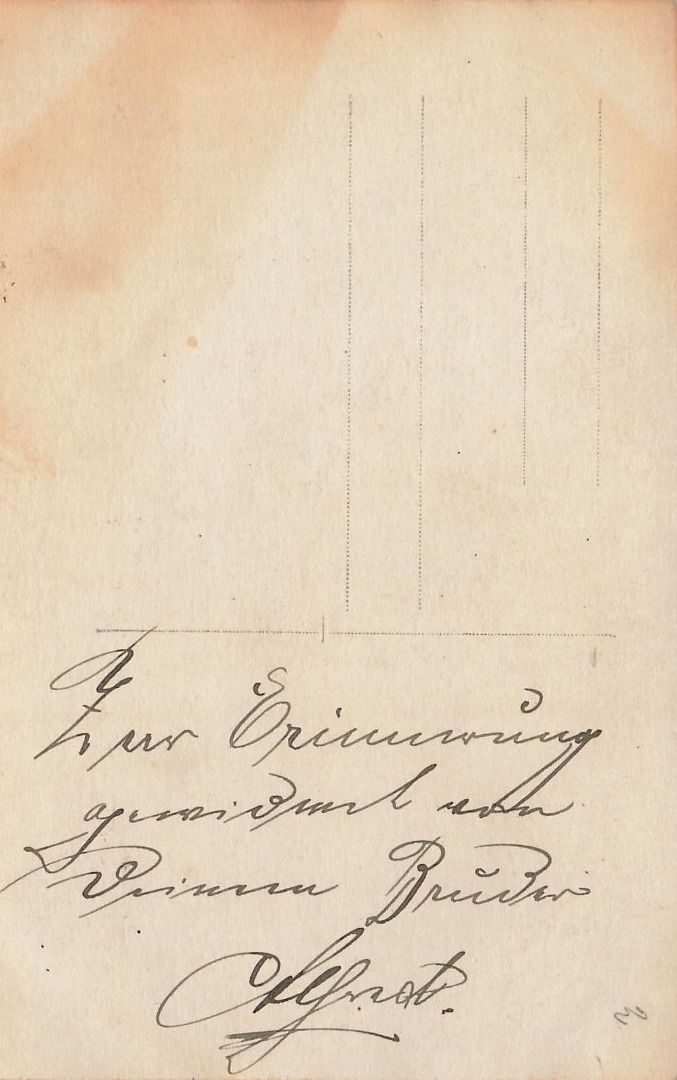 Zur Erinnerung
gewidmet von
Deinem Bruder
Alfred.